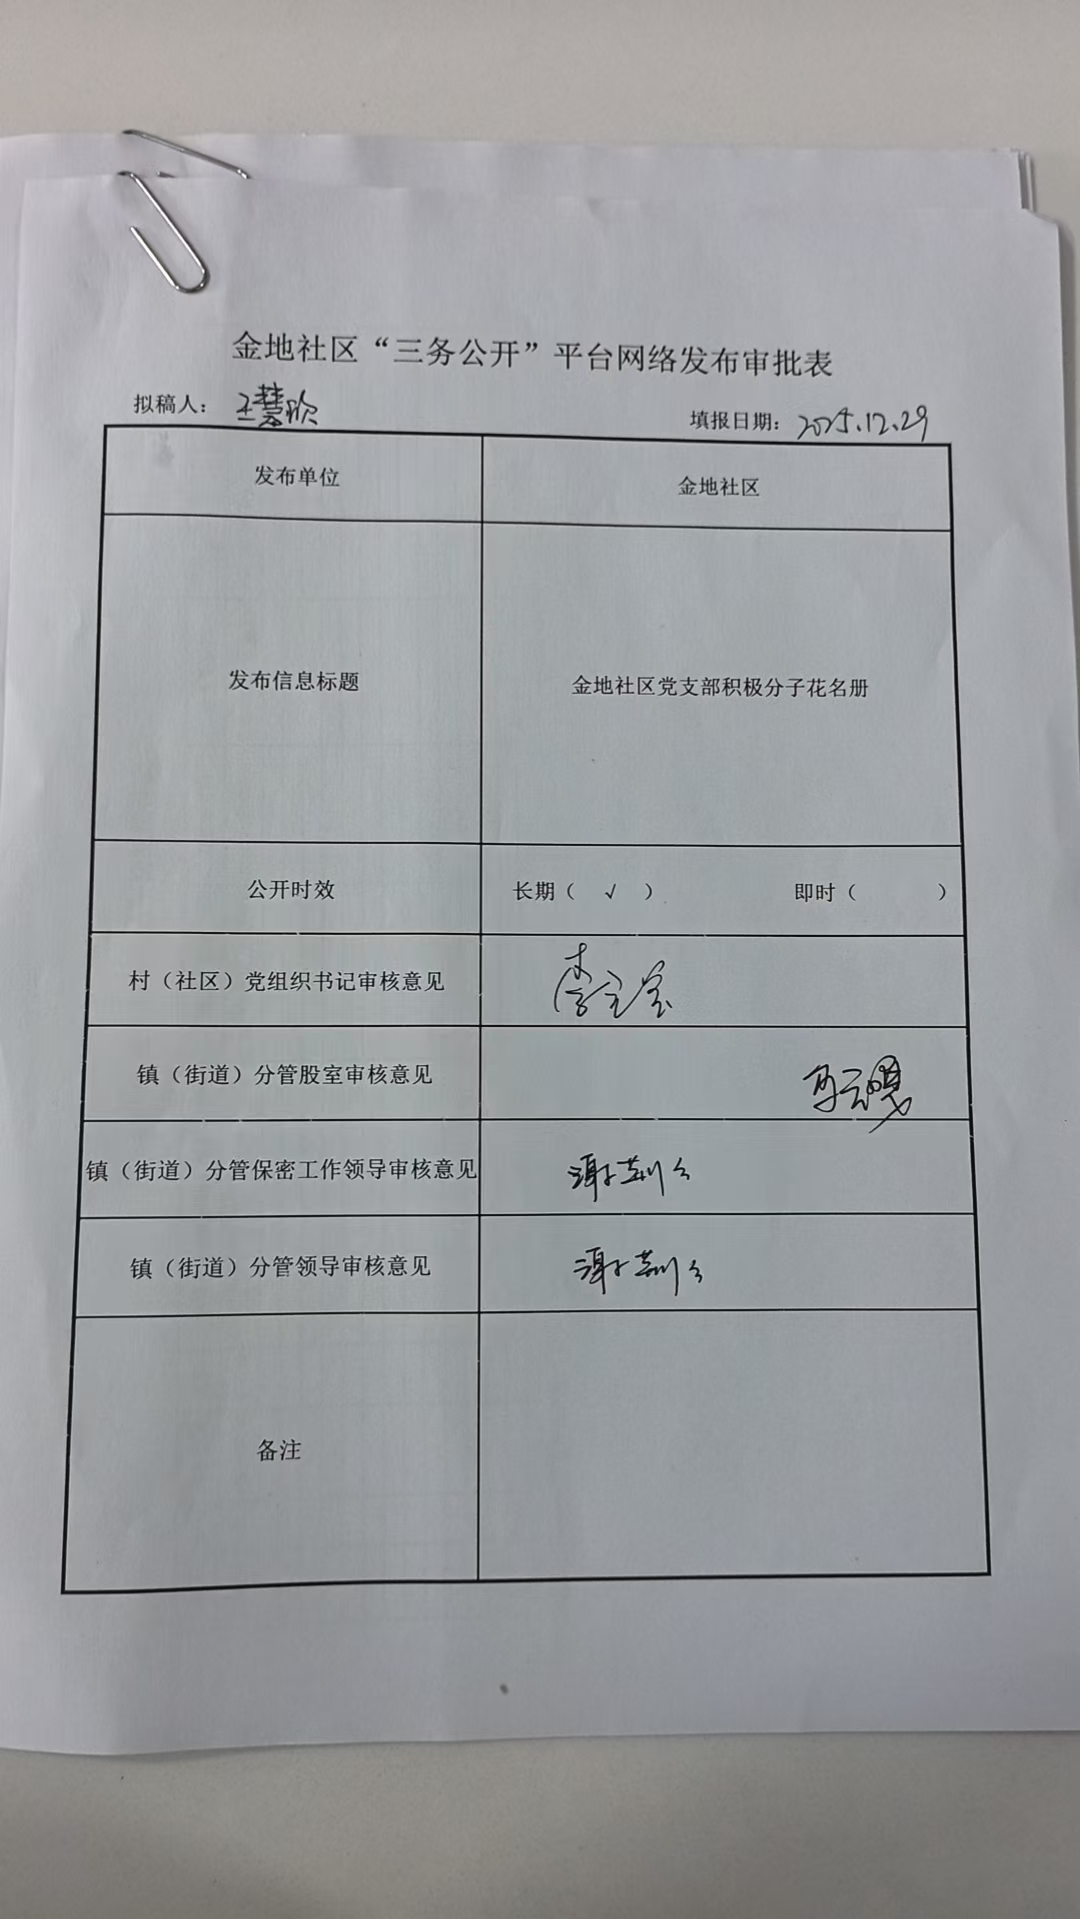 金地社区“三务公开”平台网络发布审批表
拟稿人： 王慧欣
填报日期： 2025.12.29
发布单位
金地社区
发布信息标题
金地社区党支部积极分子花名册
公开时效
长期（ √ ） 即时（ ）
村（社区）党组织书记审核意见
镇（街道）分管股室审核意见
镇（街道）分管保密工作领导审核意见
镇（街道）分管领导审核意见
备注